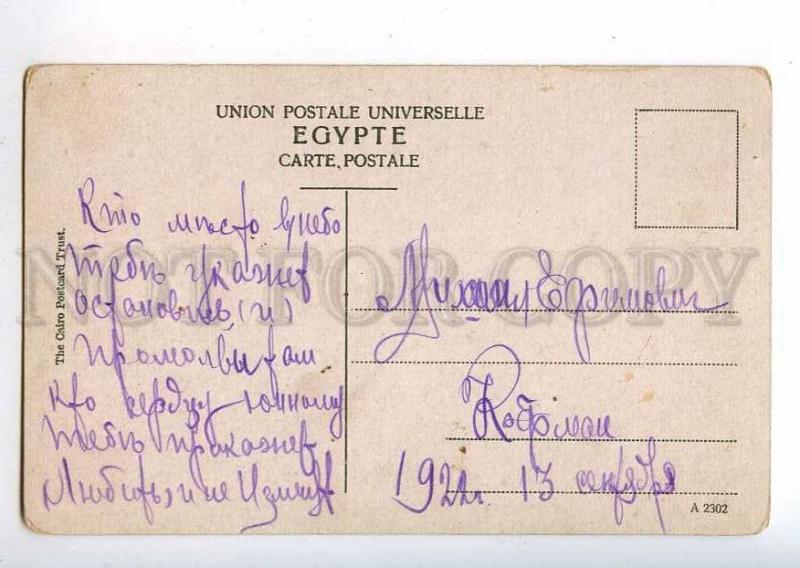 UNION POSTALE UNIVERSELLE
EGYPTE
CARTE POSTALE
The Cairo Postcard Trust.
Кто место в небо
тебѣ укажет
Остановись (и)
промолвы там
кто сердцу юному
тебѣ прикажет
Любить, и не
Михаил Ефимович
Кофман
192 г. 13 сентября
A 2302
NOT FOR COPY